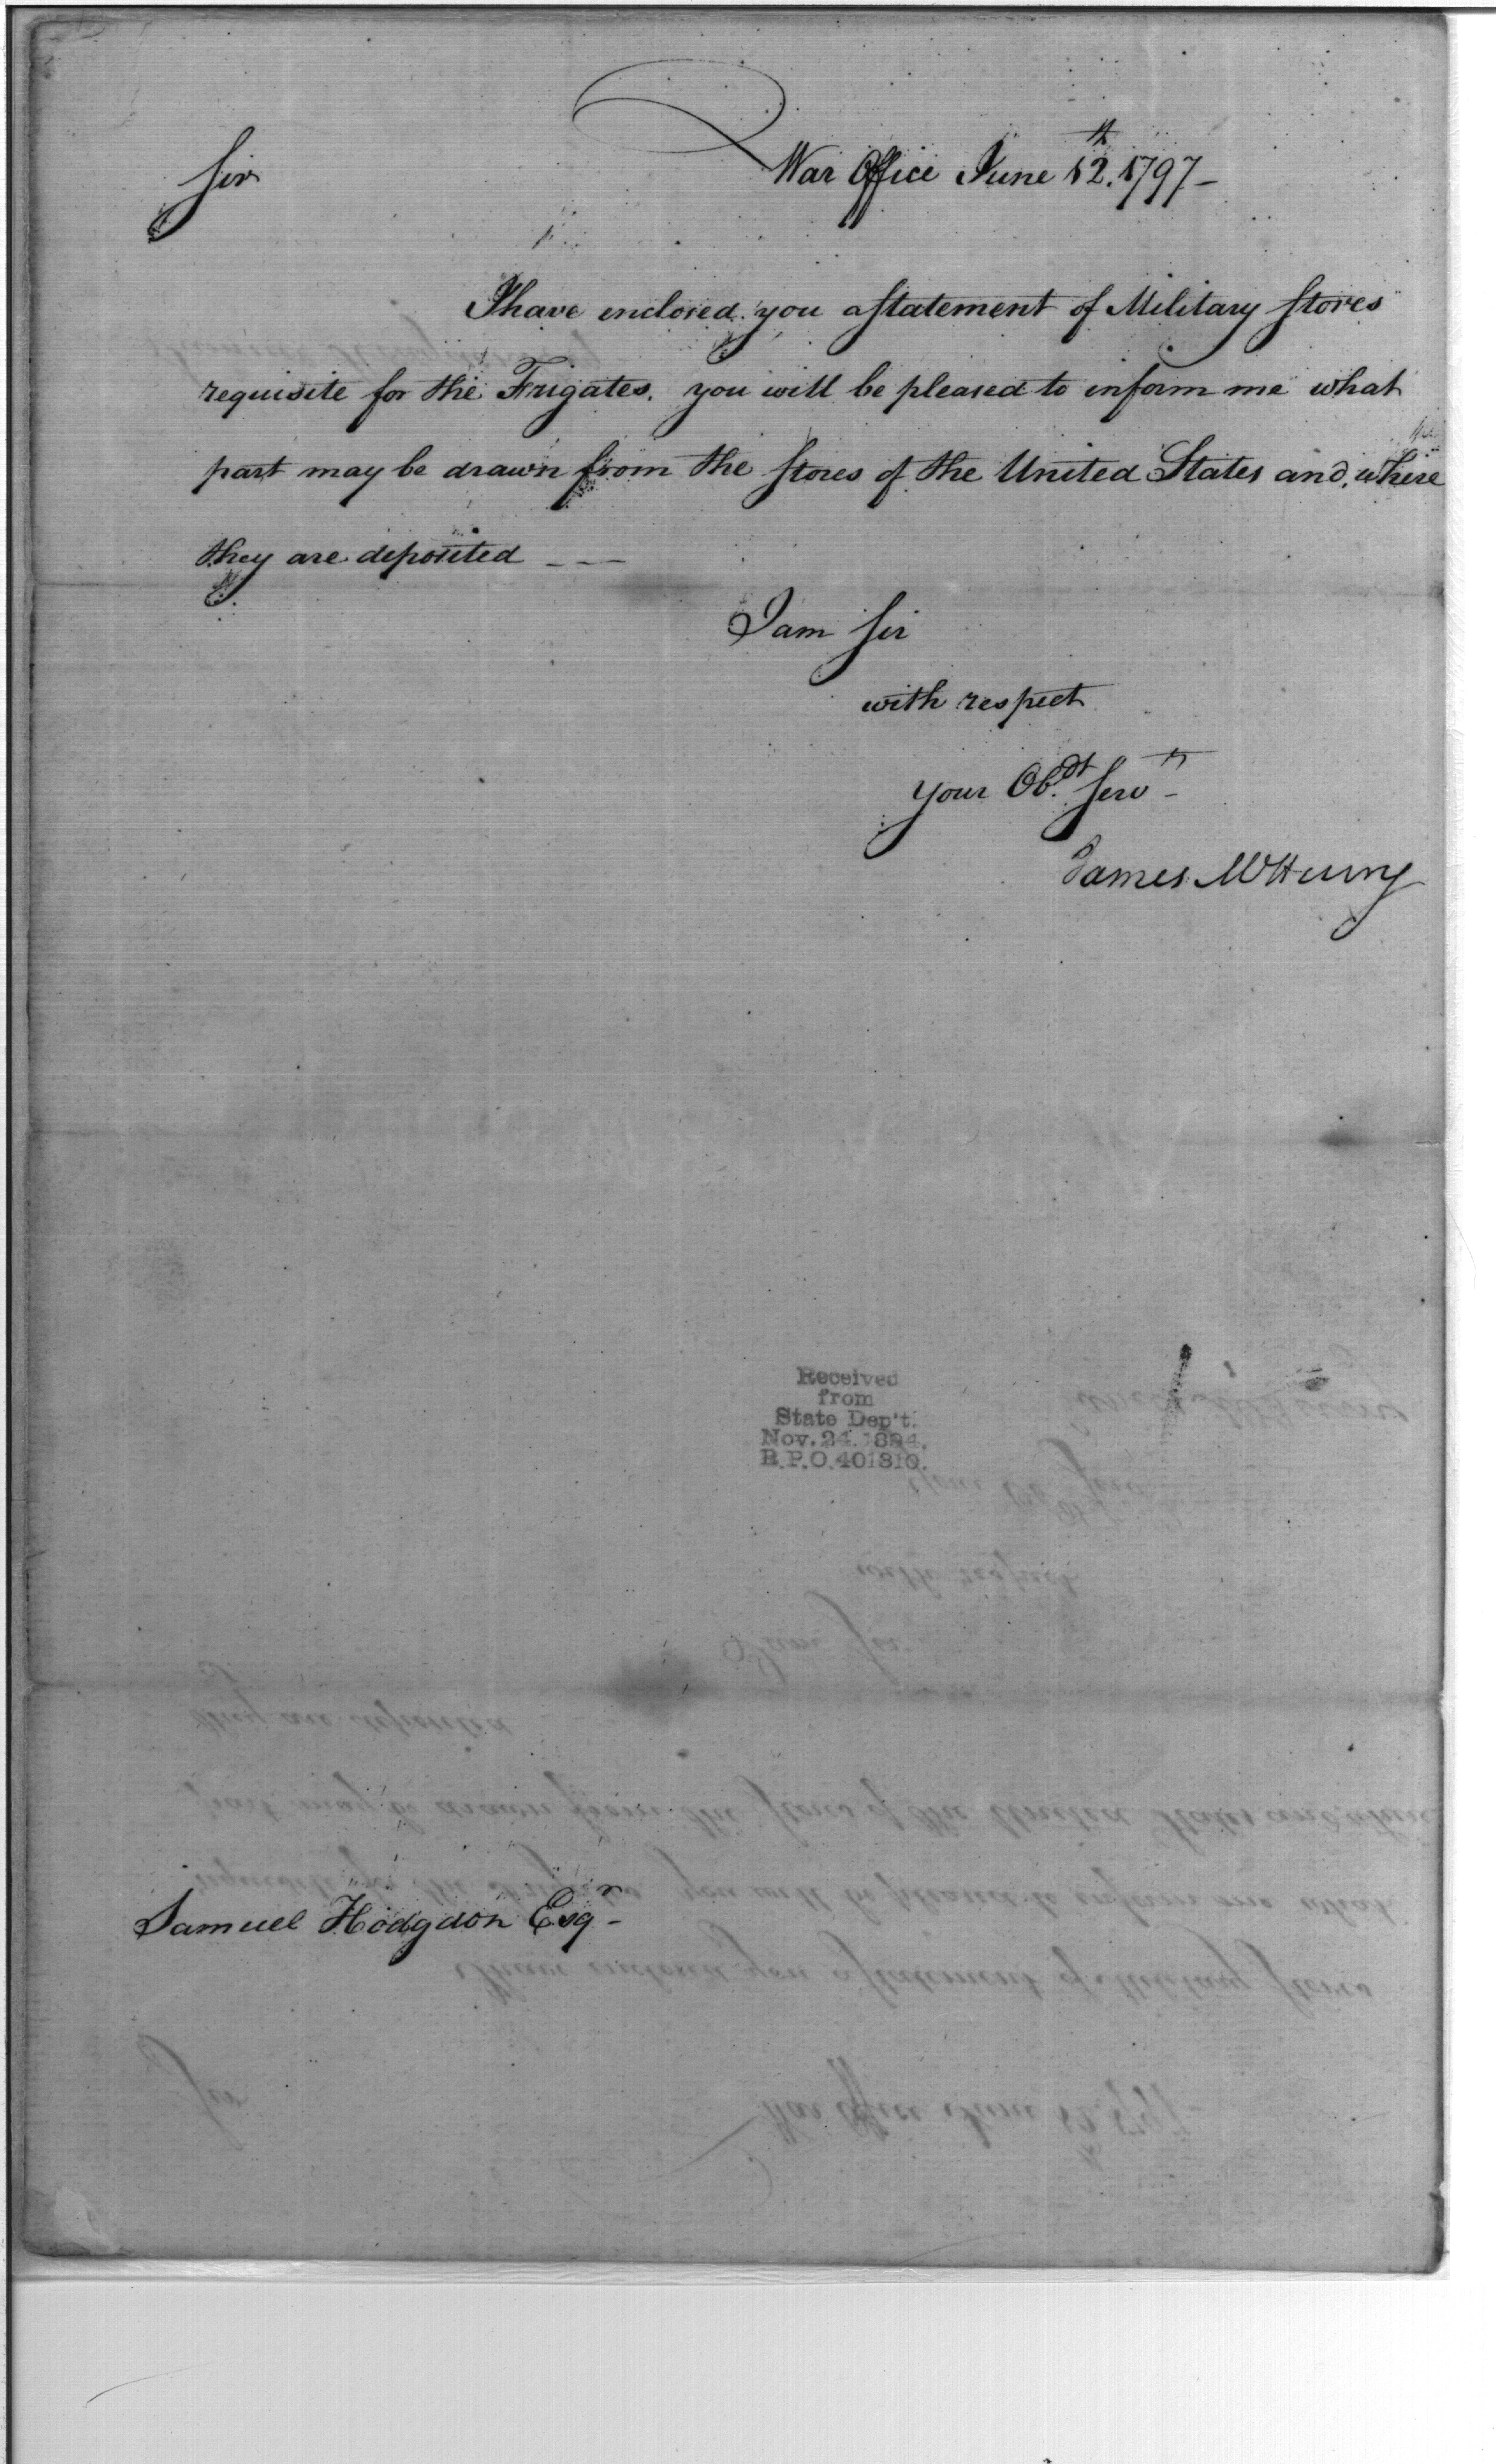 War Office June 12.th 1797-
Sir
I have enclosed you a statement of Military Stores
requisite for the Frigates. you will be pleased to inform me what
part may be drawn from the Stores of the United States and, where
they are deposited - - -
I am Sir
with respect
your Ob.dt Servt
James McHenry
Received
from
State Dep't.
Nov. 24. 1894.
R.P.O. 401810.
Samuel Hodgdon Esqr